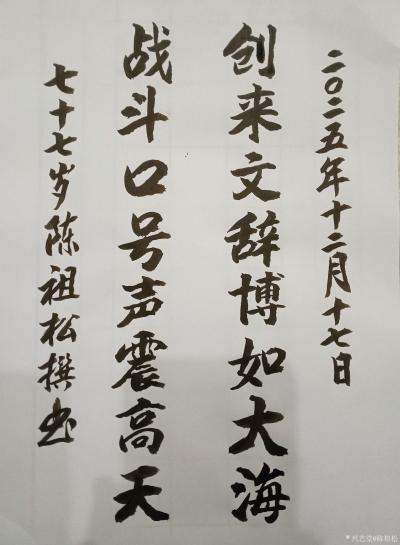 二〇二五年十二月十七日
创来文辞博如大海
战斗口号声震高天
七十七岁陈祖松撰书